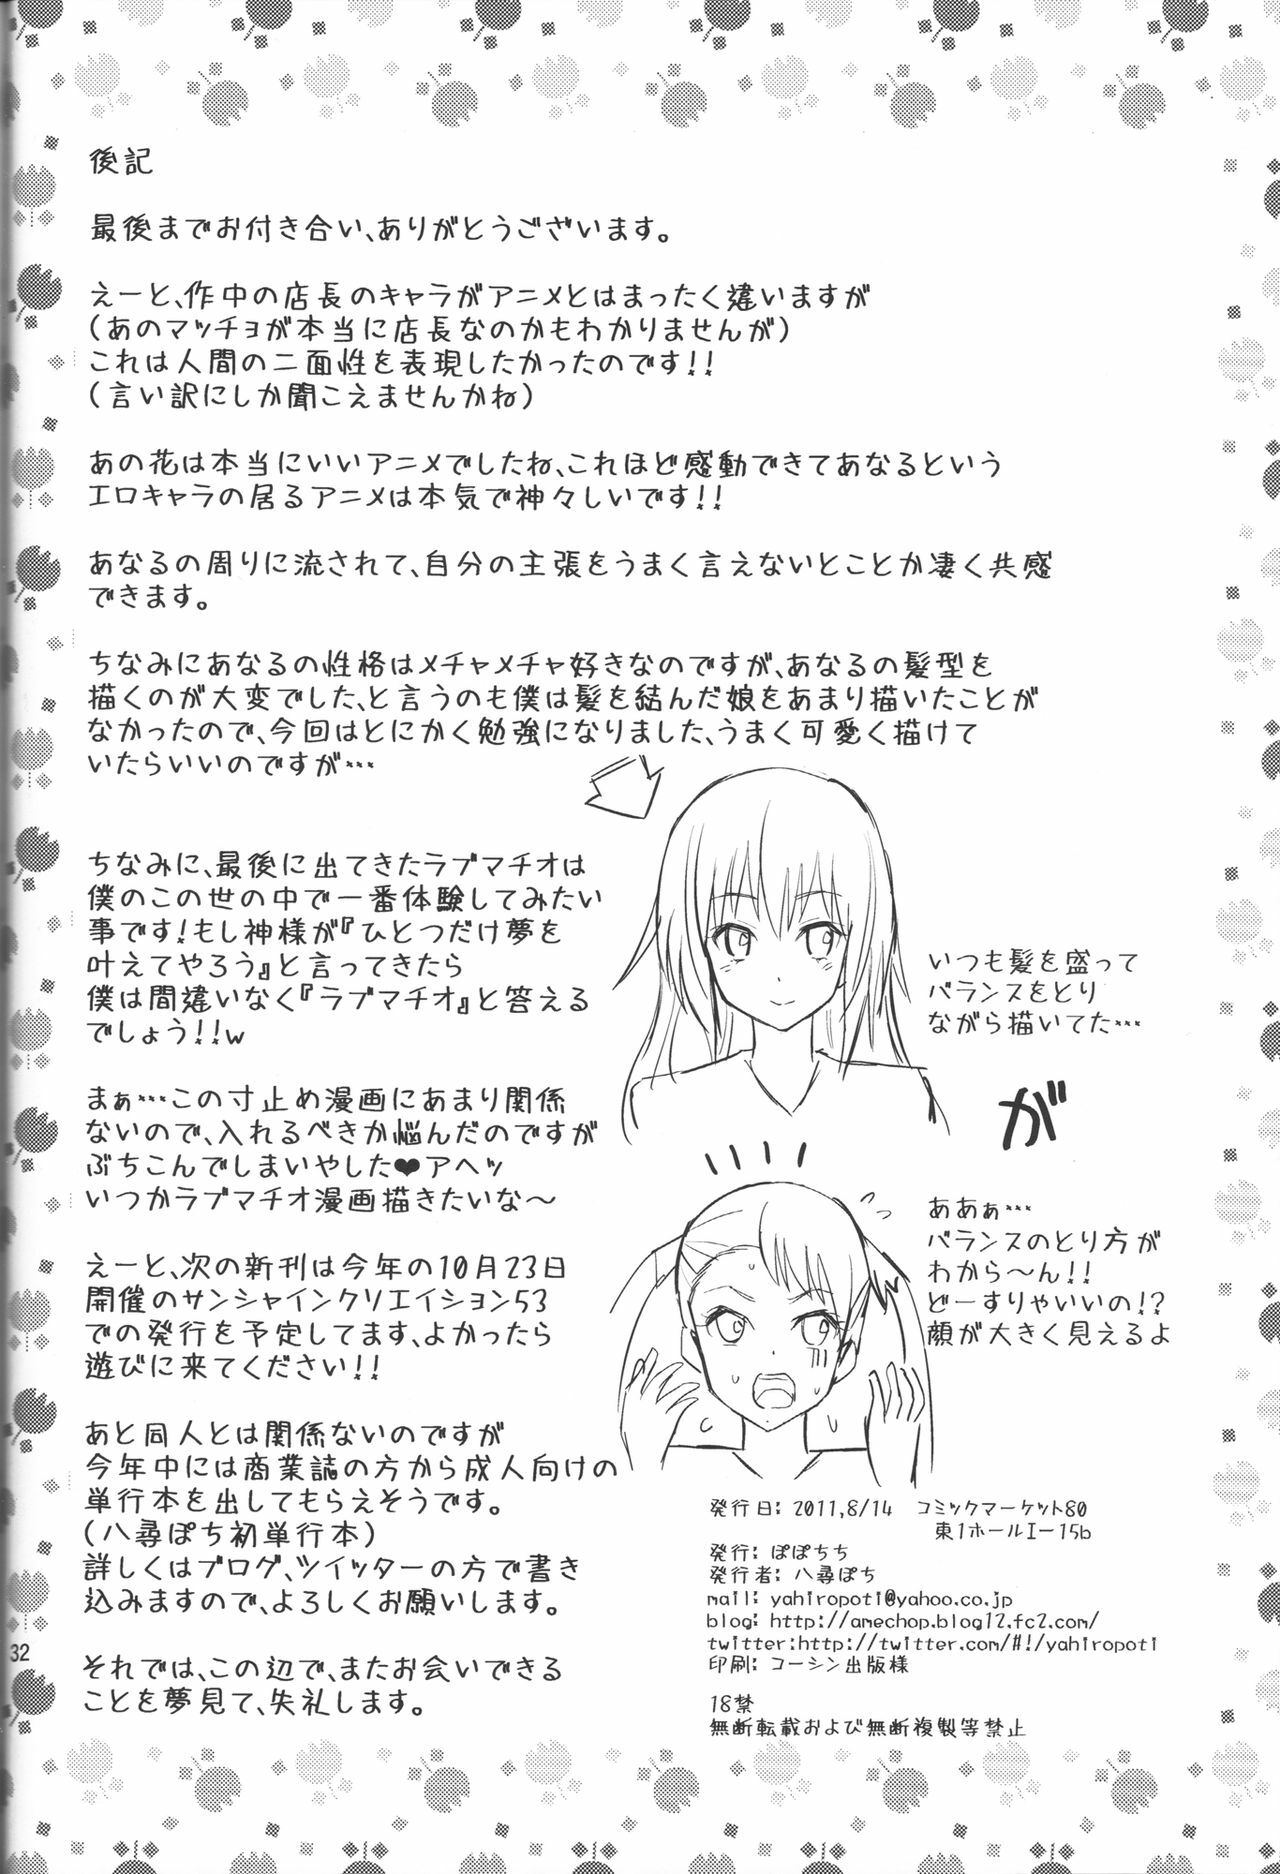 後記
最後までお付き合い、ありがとうございます。
えーと、作中の店長のキャラがアニメとはまったく違いますが
(あのマッチョが本当に店長なのかもわかりませんが)
これは人間の二面性を表現したかったのです!!
(言い訳にしか聞こえませんかね)
あの花は本当にいいアニメでしたね、これほど感動できてあなるという
エロキャラの居るアニメは本気で神々しいです!!
あなるの周りに流されて、自分の主張をうまく言えないとことか凄く共感
できます。
ちなみにあなるの性格はメチャメチャ好きなのですが、あなるの髪型を
描くのが大変でした、と言うのも僕は髪を結んだ娘をあまり描いたことが
なかったので、今回はとにかく勉強になりました、うまく可愛く描けて
いたらいいのですが…
ちなみに、最後に出てきたラブマチオは
僕のこの世の中で一番体験してみたい
事です!もし神様が『ひとつだけ夢を
叶えてやろう』と言ってきたら
僕は間違いなく『ラブマチオ』と答える
でしょう!!w
まぁ…この寸止め漫画にあまり関係
ないので、入れるべきか悩んだのですが
ぶちこんでしまいやした♥アヘッ
いつかラブマチオ漫画描きたいな～
えーと、次の新刊は今年の10月23日
開催のサンシャインクリエイション53
での発行を予定してます、よかったら
遊びに来てください!!
あと同人とは関係ないのですが
今年中には商業誌の方から成人向けの
単行本を出してもらえそうです。
(八尋ぽち初単行本)
詳しくはブログ、ツイッターの方で書き
込みますので、よろしくお願いします。
それでは、この辺で、またお会いできる
ことを夢見て、失礼します。
いつも髪を盛って
バランスをとり
ながら描いてた…
が
ああぁ…
バランスのとり方が
わから～ん!!
どーすりゃいいの!?
顔が大きく見えるよ
発行日: 2011,8/14 コミックマーケット80
東1ホールI-15b
発行: ぽぽちち
発行者: 八尋ぽち
mail: yahiropoti@yahoo.co.jp
blog: http://amechop.blog12.fc2.com/
twitter:http://twitter.com/#!/yahiropoti
印刷: コーシン出版様
18禁
無断転載および無断複製等禁止
32